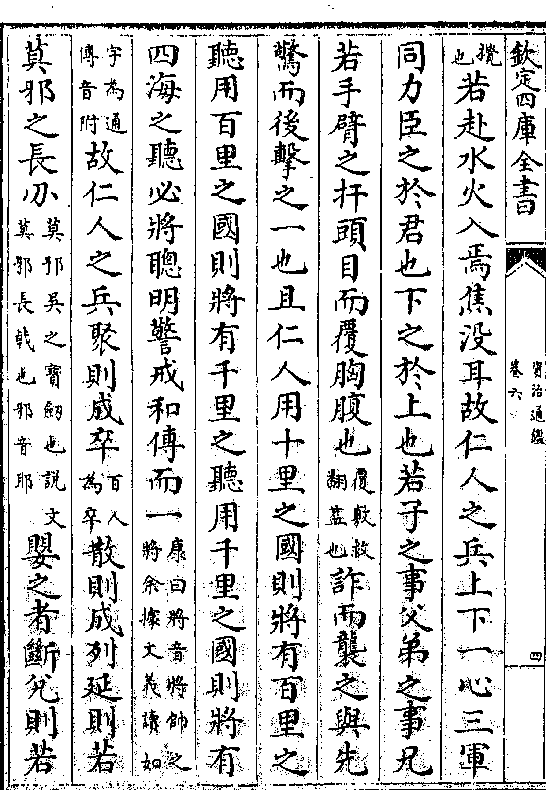 欽定四庫全書
資治通鑑
卷六
四
攪也若赴水火入焉焦没耳故仁人之兵上下一心三軍
同力臣之於君也下之於上也若子之事父弟之事兄
若手臂之扞頭目而覆胸腹也覆敷救翻蓋也詐而襲之與先
驚而後擊之一也且仁人用十里之國則將有百里之
聽用百里之國則將有千里之聽用千里之國則將有
四海之聽必將聰明警戒和傅而一康曰將音將帥之將余據文義讀如
字為通傅音附故仁人之兵聚則成卒百人為卒散則成列延則若
莫邪之長刃莫邪吳之寶劒也説文莫邪長戟也邪音耶嬰之者斷兊則若